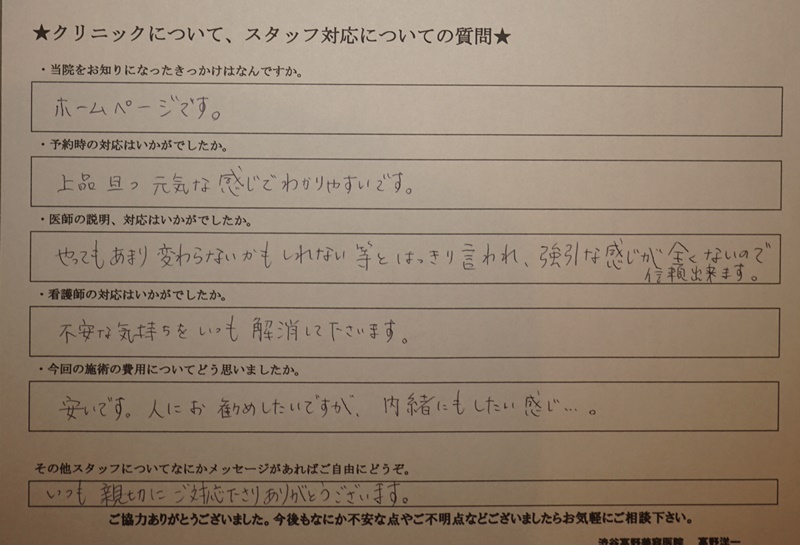 ★クリニックについて、スタッフ対応についての質問★
・当院をお知りになったきっかけはなんですか。
ホームページです。
・予約時の対応はいかがでしたか。
上品且つ元気な感じでわかりやすいです。
・医師の説明、対応はいかがでしたか。
やってもあまり変わらないかもしれない等とはっきり言われ、強引な感じが全くないので
信頼出来ます。
・看護師の対応はいかがでしたか。
不安な気持ちをいつも解消して下さいます。
・今回の施術の費用についてどう思いましたか。
安いです。人にお勧めしたいですが、内緒にもしたい感じ…。
その他スタッフについてなにかメッセージがあればご自由にどうぞ。
いつも親切にご対応下さりありがとうございます。
ご協力ありがとうございました。今後もなにか不安な点やご不明点などございましたらお気軽にご相談下さい。
渋谷高野美容医院 高野洋一